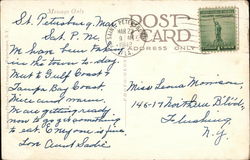 Message Only
POST CARD
ADDRESS ONLY
St. Petersburg, 
Sat. P.M.
We have been taking
in the town to-day
Went to Gulf Coast &
Tampa Bay Coast.
Nice and warm.
We are getting ready
now to go get something
to eat. Everyone is fine
Love Aunt Sadie
Miss Lena Morrison,
146-17 Northern Blvd,
Flushing,
N.Y.